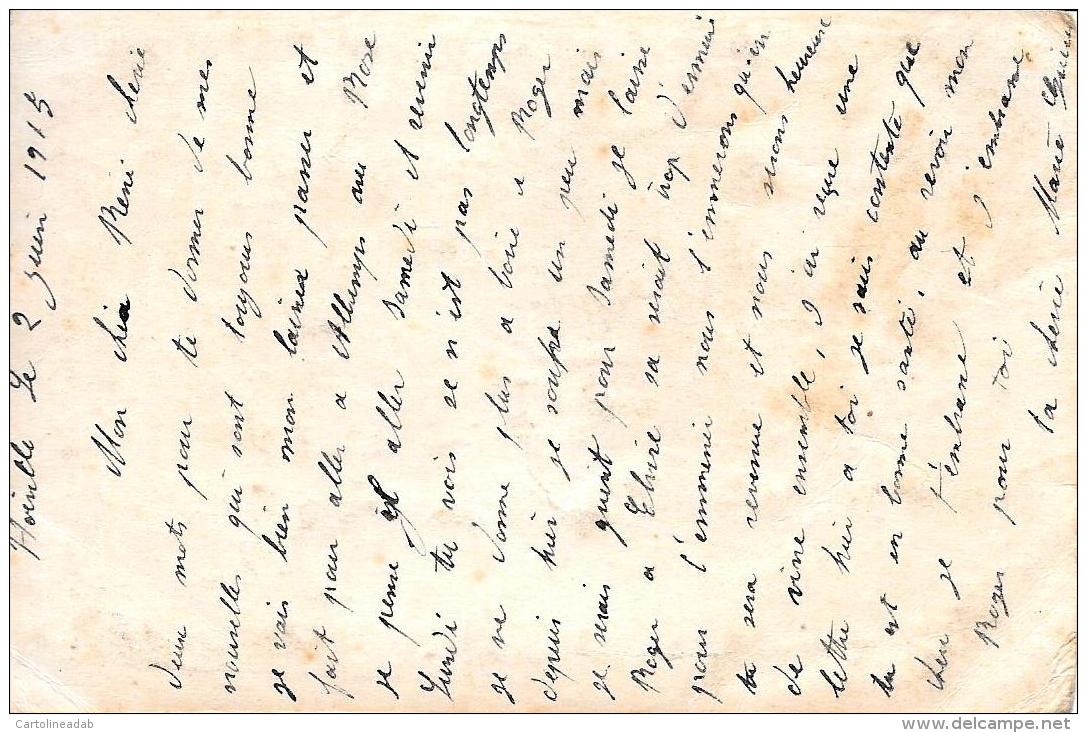 Le 2 guin 1915
Mon cher Réné cherie
deux mots pour te donner de mes
nouvelles qui sont toujours bonne
je vais bien mon laisser passer et
fait pour aller a au Roze
je pense aller samedi et revenir
Lundi tu vois se n'est pas longtemps
je ne donne plus a boire a Roger
depuis hier je soufre un peu mais
je serais guerit pour samedi je laisse
Roger a Elvire sa serait trop d'ennui
pour l'emmener nous l'emmerons quan
tu sera revenue et nous serons heureux
de vivre ensemble, j'ai reçue une
lettre hier a toi je suis contente que
tu est en bonne santé, au revoir mon
cher je t'enbrasse et j'enbrasse
Roger pour toi
ta cherie Marie
Cartolineadab
delcampe.net